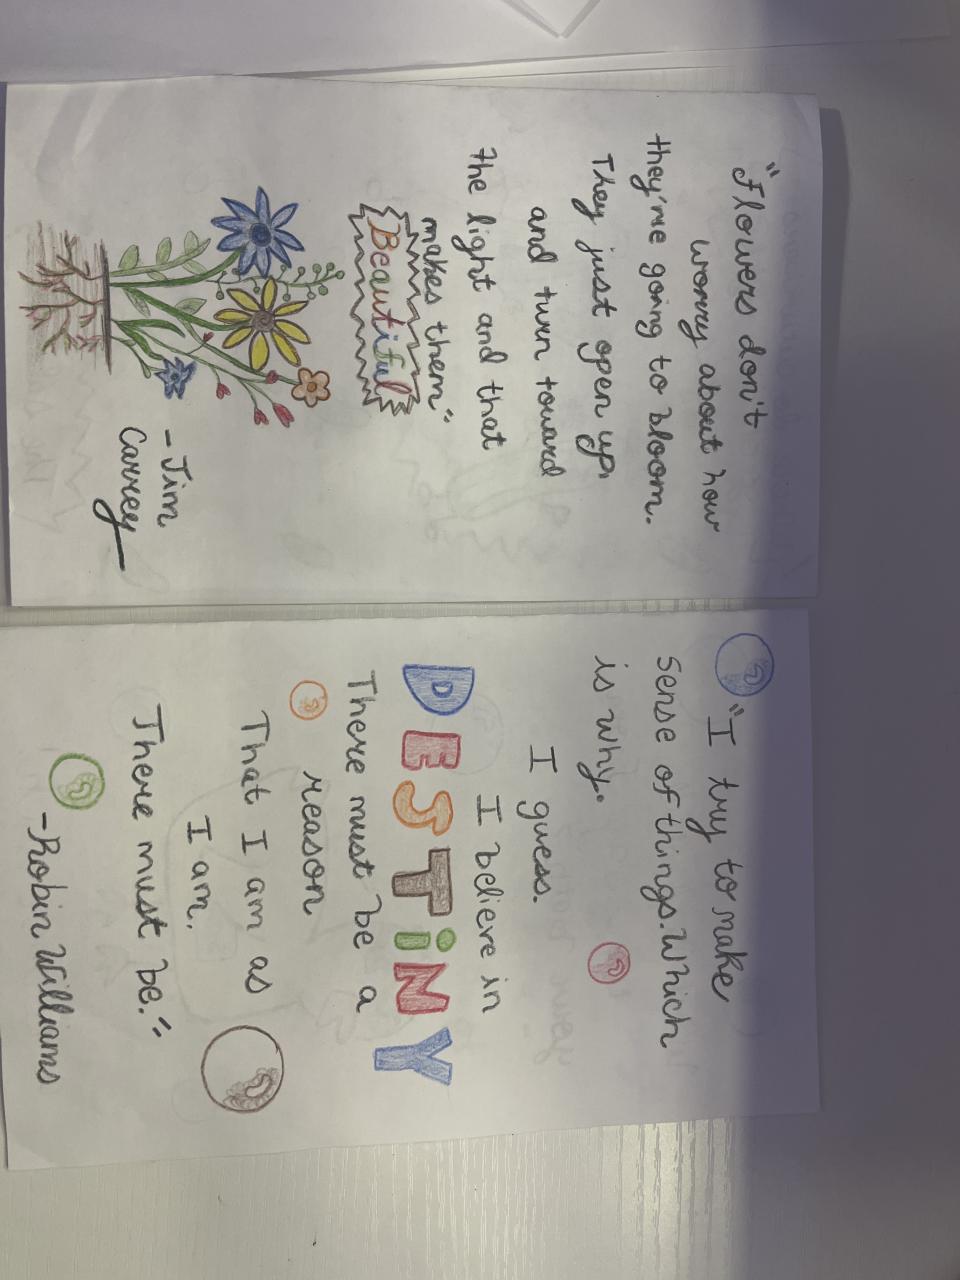 "Flowers don't
worry about how
they're going to bloom.
They just open up,
and turn toward
the light and that
makes them"
Beautiful
-Jim
Carrey
"I try to make
sense of things. Which
is why.
I guess.
I believe in
DESTiNY
There must be a
reason
That I am as
I am.
There must be."
-Robin Williams